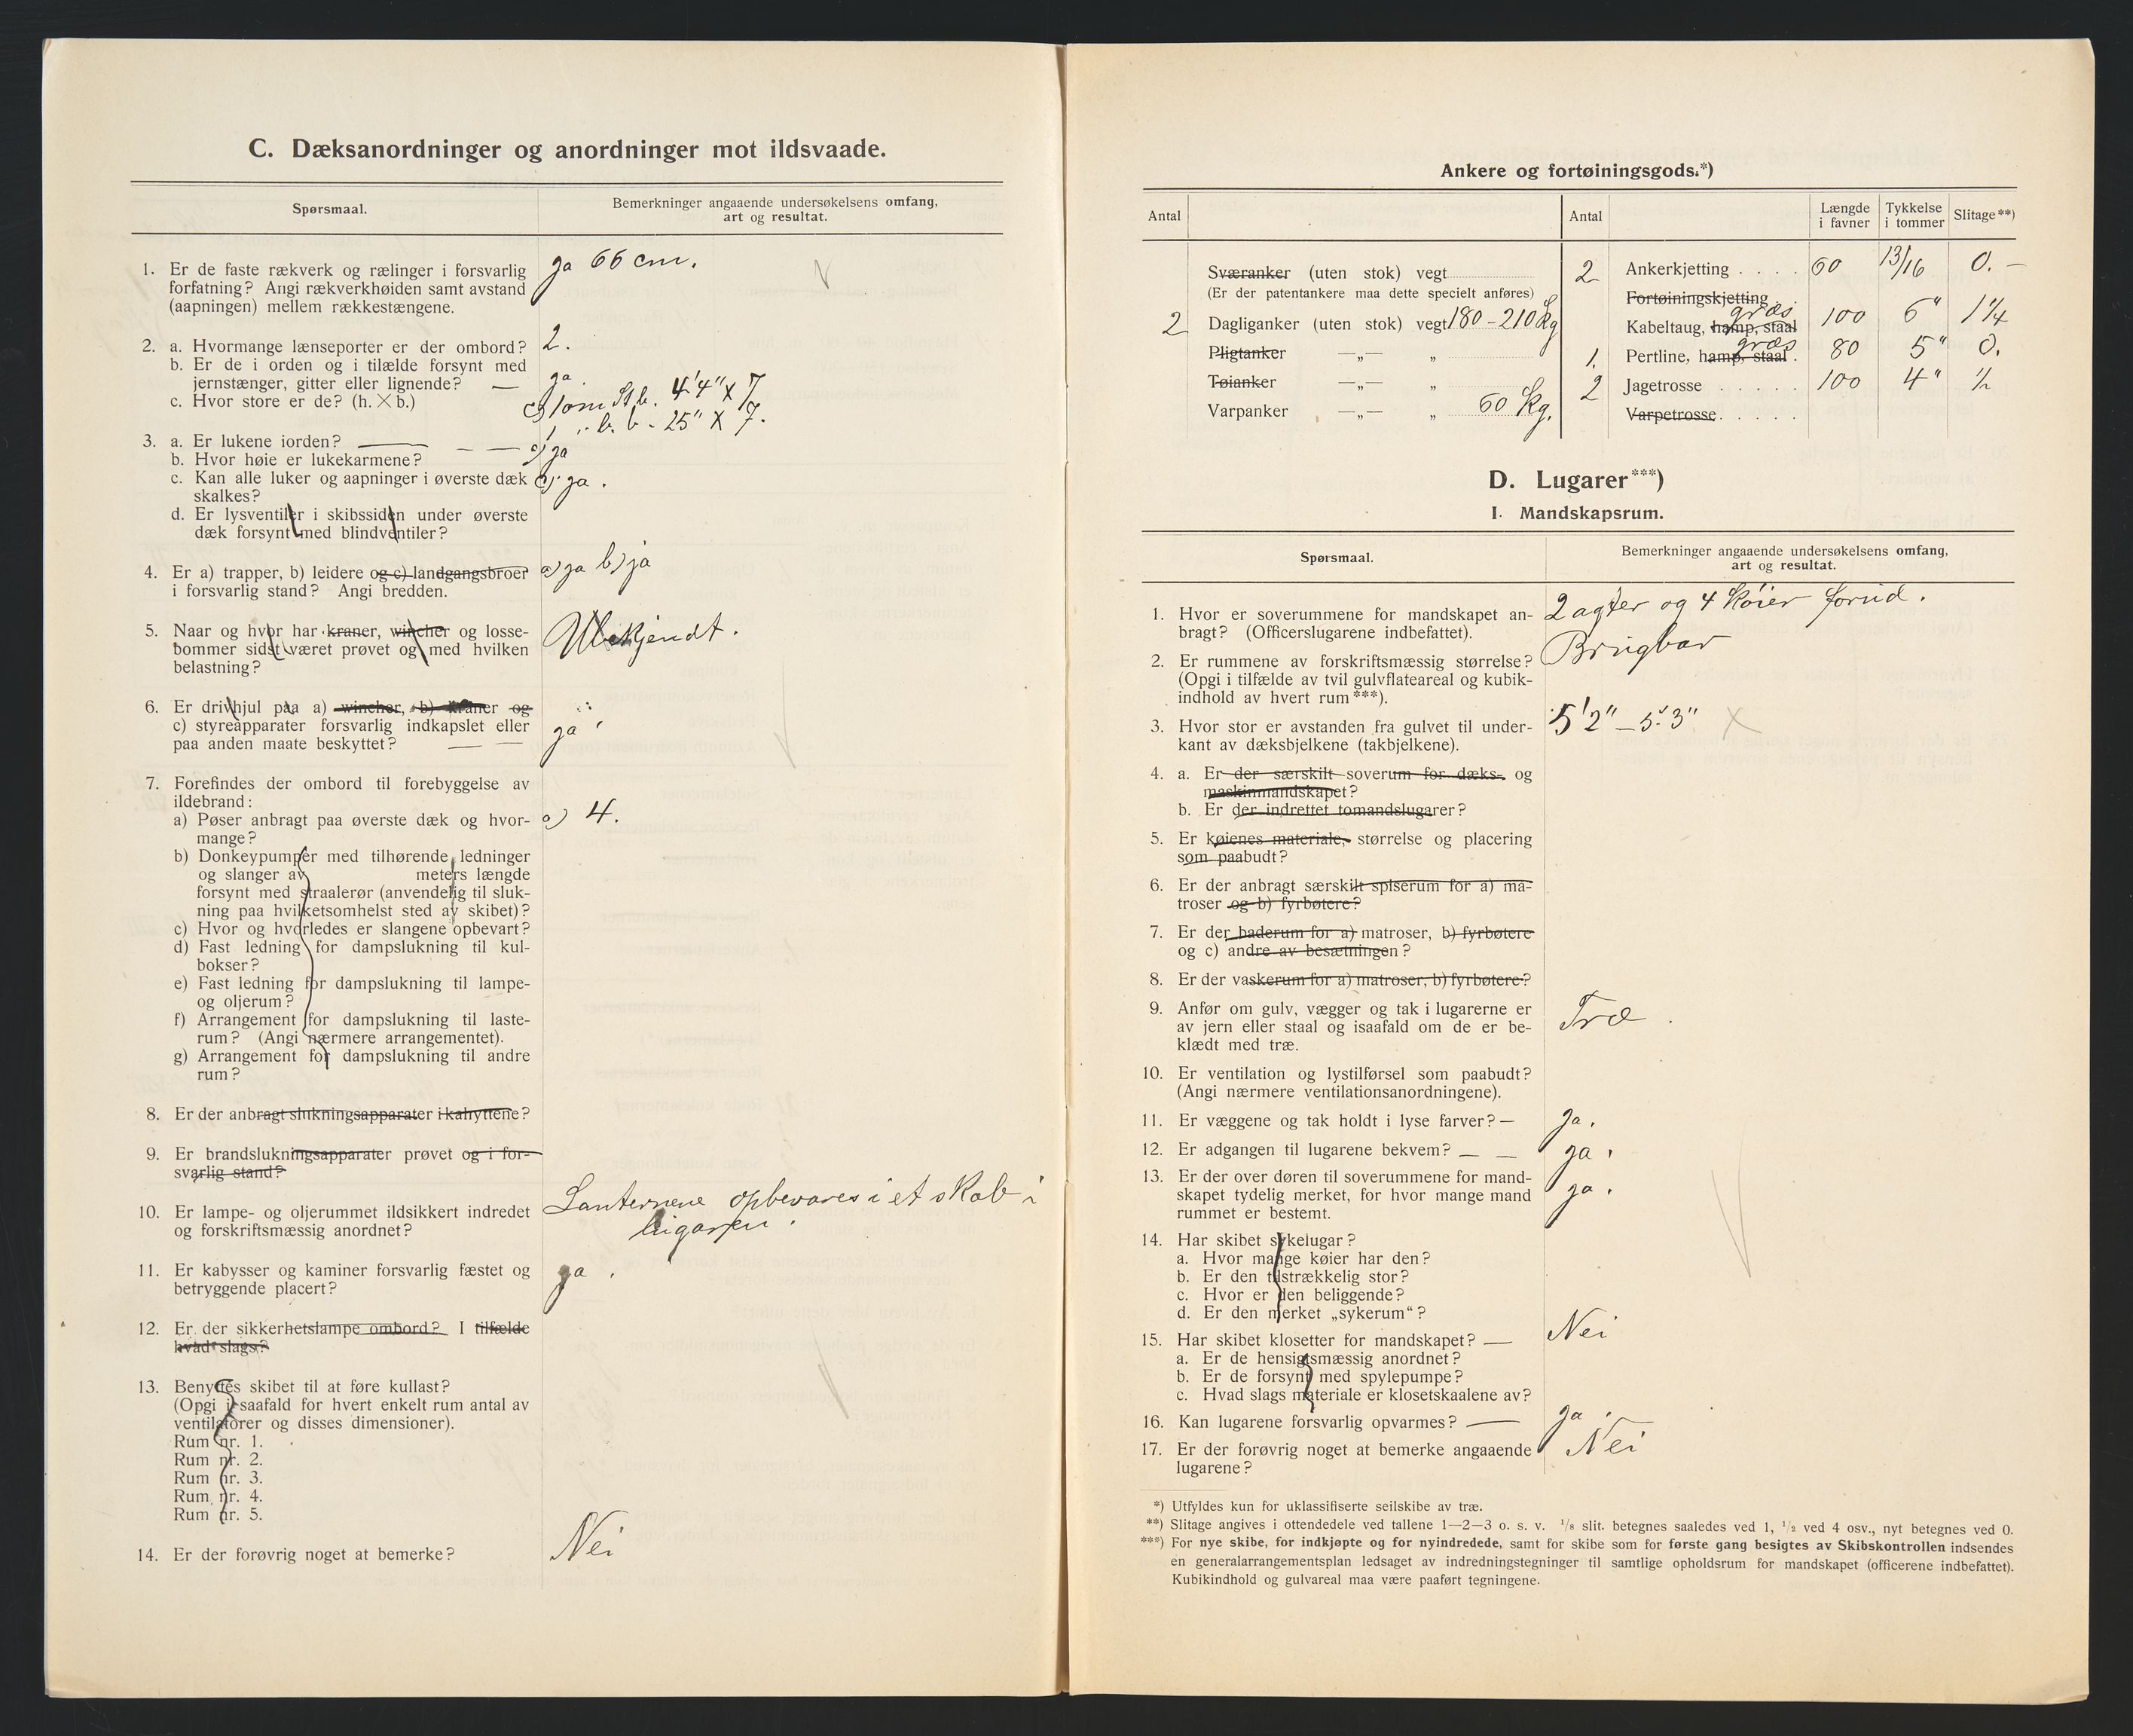 C. Dæksanordninger og anordninger mot ildsvaade.
Spørsmaal.
Bemerkninger angaaende undersøkelsens omfang,
art og resultat.
1. Er de faste rækverk og rælinger i forsvarlig
forfatning? Angi rækverkhøiden samt avstand
(aapningen) mellem rækkestængene.
ja 66 cm.
2. a. Hvormange lænseporter er der ombord?
2.
b. Er de i orden og i tilælde forsynt med
jernstænger, gitter eller lignende?
ja
c. Hvor store er de? (h. × b.)
c) 1 om St.b. 4'4" x 7
1 " b.b. 25" x 7.
3. a. Er lukene iorden?
a) ja
b. Hvor høie er lukekarmene?
c. Kan alle luker og aapninger i øverste dæk
skalkes?
c) ja.
d. Er lysventiler i skibssiden under øverste
dæk forsynt med blindventiler?
4. Er a) trapper, b) leidere og c) landgangsbroer
i forsvarlig stand? Angi bredden.
a) ja b) ja
5. Naar og hvor har kraner, wincher og losse-
bommer sidst været prøvet og med hvilken
belastning?
Ubekjendt.
6. Er drivhjul paa a) wincher, b) kraner og
c) styreapparater forsvarlig indkapslet eller
paa anden maate beskyttet?
ja
7. Forefindes der ombord til forebyggelse av
ildebrand:
a) Pøser anbragt paa øverste dæk og hvor-
mange?
a) 4.
b) Donkeypumper med tilhørende ledninger
og slanger av meters længde
forsynt med straalerør (anvendelig til sluk-
ning paa hvilketsomhelst sted av skibet)?
c) Hvor og hvorledes er slangene opbevart?
d) Fast ledning for dampslukning til kul-
bokser?
e) Fast ledning for dampslukning til lampe-
og oljerum?
f) Arrangement for dampslukning til laste-
rum? (Angi nærmere arrangementet).
g) Arrangement for dampslukning til andre
rum?
8. Er der anbragt slukningsapparater i kahyttene?
9. Er brandslukningsapparater prøvet og i for-
svarlig stand?
10. Er lampe- og oljerummet ildsikkert indredet
og forskriftsmæssig anordnet?
Lanternene opbevares i et skab i
lugaren.
11. Er kabysser og kaminer forsvarlig fæstet og
betryggende placert?
ja.
12. Er der sikkerhetslampe ombord? I tilfælde
hvad slags?
13. Benyttes skibet til at føre kullast?
(Opgi i saafald for hvert enkelt rum antal av
ventilatorer og disses dimensioner).
Rum nr. 1.
Rum nr. 2.
Rum nr. 3.
Rum nr. 4.
Rum nr. 5.
14. Er der forøvrig noget at bemerke?
Nei
Ankere og fortøiningsgods.*)
Antal
Antal
Længde
i favner
Tykkelse
i tommer
Slitage**)
Sværanker (uten stok) vegt
(Er der patentankere maa dette specielt anføres)
2 Dagliganker (uten stok) vegt 180-210 Kg
Pligtanker —„— „
Tøianker —„— „
Varpanker —„— „ 60 Kg.
2 Ankerkjetting 60 13/16 0.-
Fortøiningskjetting
gras
Kabeltaug, hamp, staal 100 6" 1 1/4
gras
1. Pertline, hamp, staal 80 5" 0.
2 Jagetrosse 100 4" 1/2
Varpetrosse
D. Lugarer***)
I. Mandskapsrum.
Spørsmaal.
Bemerkninger angaaende undersøkelsens omfang,
art og resultat.
1. Hvor er soverummene for mandskapet an-
bragt? (Officerslugarene indbefattet).
2 agter og 4 Köier forud.
2. Er rummene av forskriftsmæssig størrelse?
(Opgi i tilfælde av tvil gulvflateareal og kubik-
indhold av hvert rum***).
Brugbar
3. Hvor stor er avstanden fra gulvet til under-
kant av dæksbjelkene (takbjelkene).
5'2" - 5'3"
4. a. Er der særskilt soverum for dæks- og
maskinmandskapet?
b. Er der indrettet tomandslugarer?
5. Er køienes materiale, størrelse og placering
som paabudt?
6. Er der anbragt særskilt spiserum for a) ma-
troser og b) fyrbøtere?
7. Er der baderum for a) matroser, b) fyrbøtere
og c) andre av besætningen?
8. Er der vaskerum for a) matroser, b) fyrbøtere?
9. Anfør om gulv, vægger og tak i lugarerne er
av jern eller staal og isaafald om de er be-
klædt med træ.
Træ.
10. Er ventilation og lystilførsel som paabudt?
(Angi nærmere ventilationsanordningene).
11. Er væggene og tak holdt i lyse farver? —
ja.
12. Er adgangen til lugarene bekvem?
ja.
13. Er der over døren til soverummene for mand-
skapet tydelig merket, for hvor mange mand
rummet er bestemt.
ja.
14. Har skibet sykelugar?
a. Hvor mange køier har den?
b. Er den tilstrækkelig stor?
c. Hvor er den beliggende?
d. Er den merket „sykerum“?
15. Har skibet klosetter for mandskapet?
Nei
a. Er de hensigtsmæssig anordnet?
b. Er de forsynt med spylepumpe?
c. Hvad slags materiale er klosetskaalene av?
16. Kan lugarene forsvarlig opvarmes?
ja.
17. Er der forøvrig noget at bemerke angaaende
lugarene?
Nei
*) Utfyldes kun for uklassifiserte seilskibe av træ.
**) Slitage angives i ottendedele ved tallene 1—2—3 o. s. v. 1/8 slit. betegnes saaledes ved 1, 1/2 ved 4 osv., nyt betegnes ved 0.
***) For nye skibe, for indkjøpte og for nyindredede, samt for skibe som for første gang besigtes av Skibskontrollen indsendes
en generalarrangementsplan ledsaget av indredningstegninger til samtlige opholdsrum for mandskapet (officerene indbefattet).
Kubikindhold og gulvareal maa være paaført tegningene.